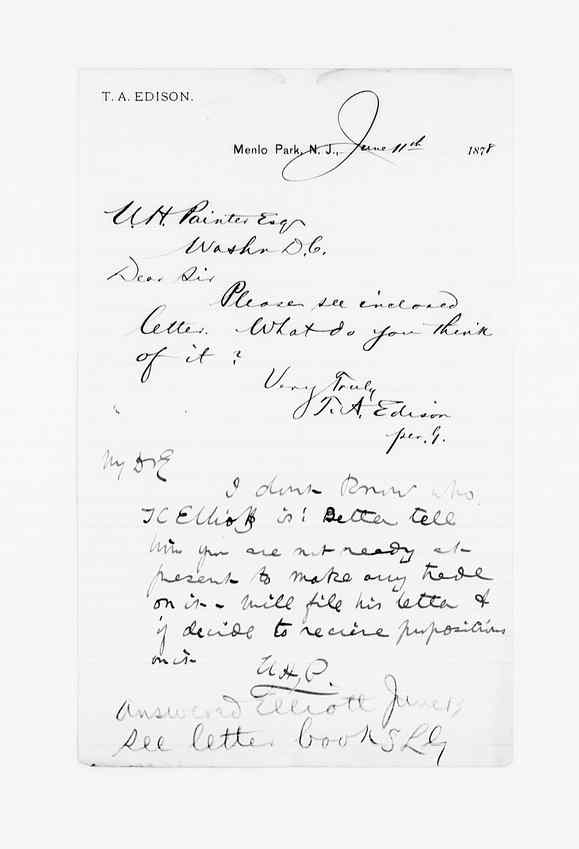 T. A. EDISON.
Menlo Park, N. J., June 11th 1878
U.H. Painter Esq
Washn D.C.
Dear Sir
Please see inclosed
letter. What do you think
of it ?
Very Truly
T. A. Edison
per. G.
My D E
I dont know who
TC Elliott is! Better tell
him you are not ready at
present to make any trade
on it - will file his letter &
if decide to recieve propositions
on it
U H, P.
Answered Elliott June 13
see letter book SLG